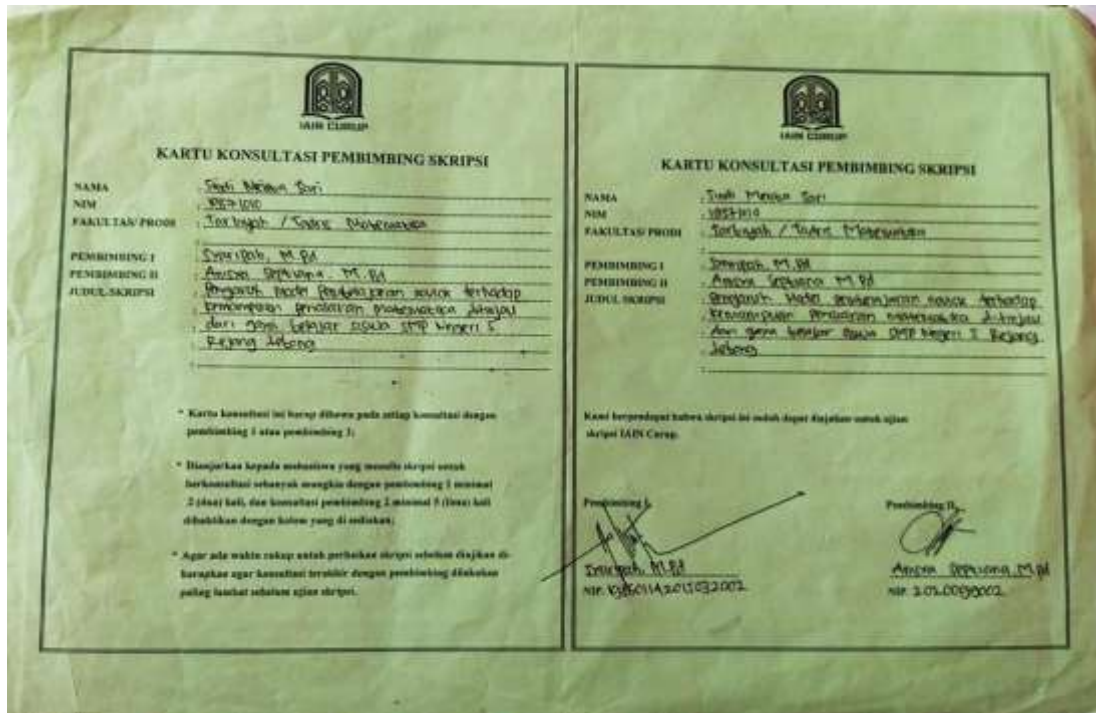 IAIN CURUP
KARTU KONSULTASI PEMBIMBING SKRIPSI
NAMA : Sari
NIM :
FAKULTAS/ PRODI : Tarbiyah / Tadris Matematika
PEMBIMBING I : Syaripah, M.Pd
PEMBIMBING II : Anisya Septiana, M.Pd
JUDUL SKRIPSI : Pengaruh Model Pembelajaran terhadap
kemampuan penalaran matematika ditinjau
dari gaya belajar siswa SMP Negeri 5
Rejang Lebong
* Kartu konsultasi ini harap dibawa pada setiap konsultasi dengan
pembimbing 1 atau pembimbing 2;
* Dianjurkan kepada mahasiswa yang menulis skripsi untuk
berkonsultasi sebanyak mungkin dengan pembimbing 1 minimal
2 (dua) kali, dan konsultasi pembimbing 2 minimal 5 (lima) kali
dibuktikan dengan kolom yang di sediakan;
* Agar ada waktu cukup untuk perbaikan skripsi sebelum diujikan di-
harapkan agar konsultasi terakhir dengan pembimbing dilakukan
paling lambat sebelum ujian skripsi.
IAIN CURUP
KARTU KONSULTASI PEMBIMBING SKRIPSI
NAMA : Sari
NIM :
FAKULTAS/ PRODI : Tarbiyah / Tadris Matematika
PEMBIMBING I : Syaripah, M.Pd
PEMBIMBING II : Anisya Septiana M.Pd
JUDUL SKRIPSI : Pengaruh Model pembelajaran terhadap
kemampuan penalaran matematika ditinjau
dari gaya belajar siswa SMP Negeri 5 Rejang
Lebong
Kami berpendapat bahwa skripsi ini sudah dapat diajukan untuk ujian
skripsi IAIN Curup.
Pembimbing I,
Pembimbing II,
Syaripah, M.Pd
Anisya Septiana, M.Pd
NIP.
NIP.